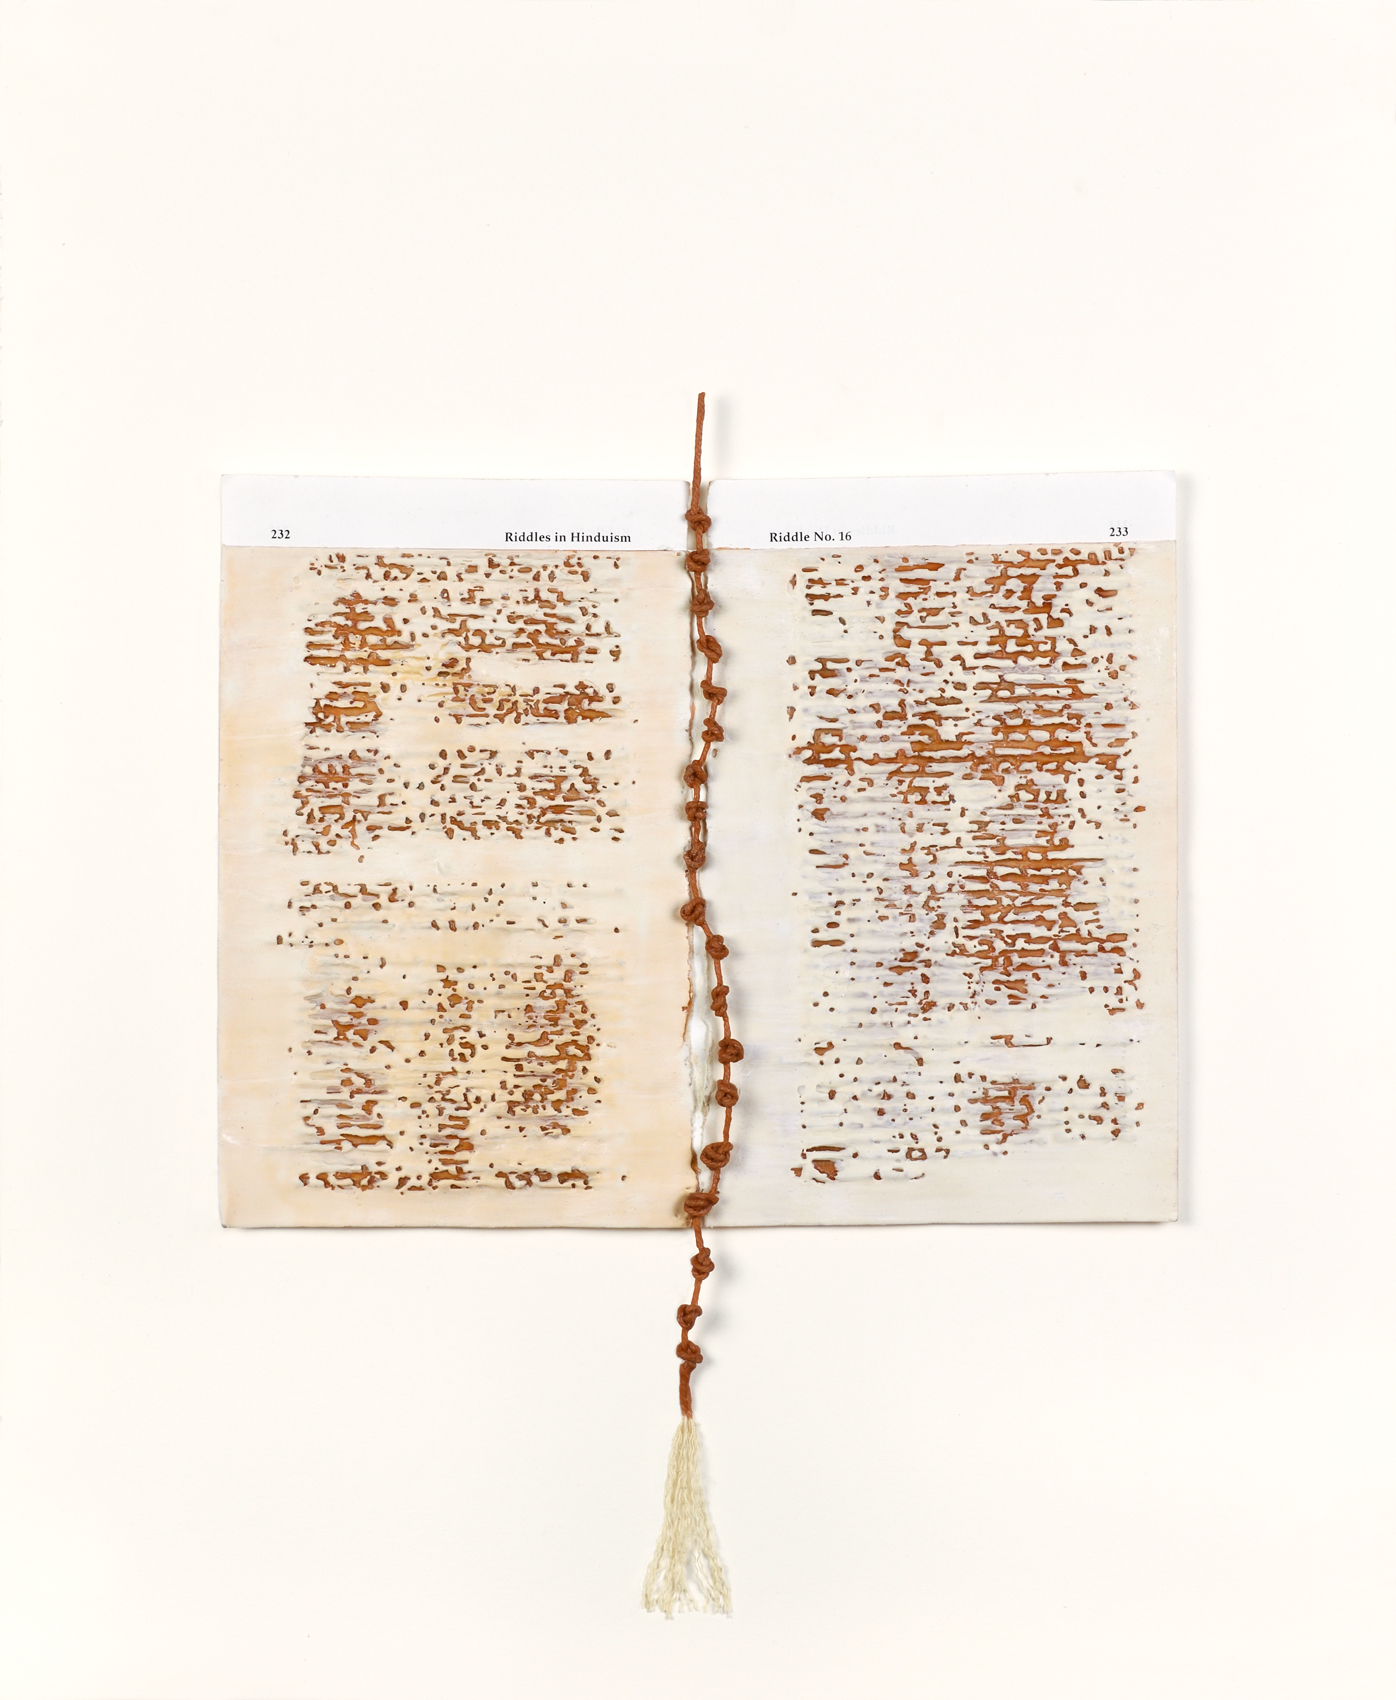 232
Riddles in Hinduism
Riddle No. 16
233